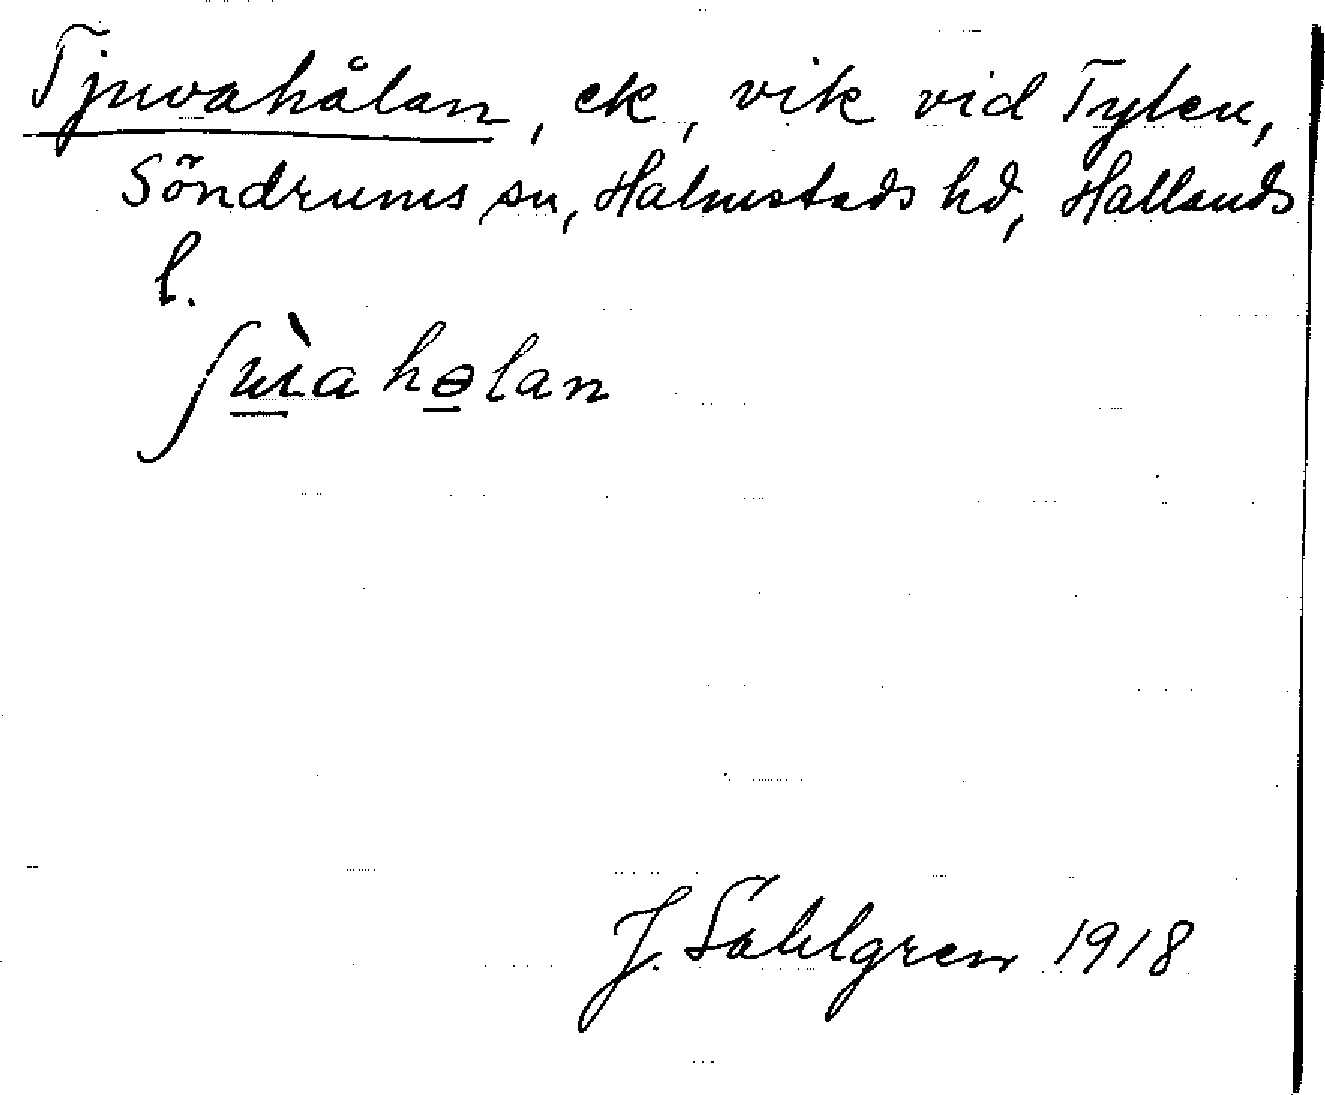 Tjuvahålan, ek, vik vid Tylen,
Söndrums sn, Halmstads hd, Hallands
l.
J. Sahlgren 1918